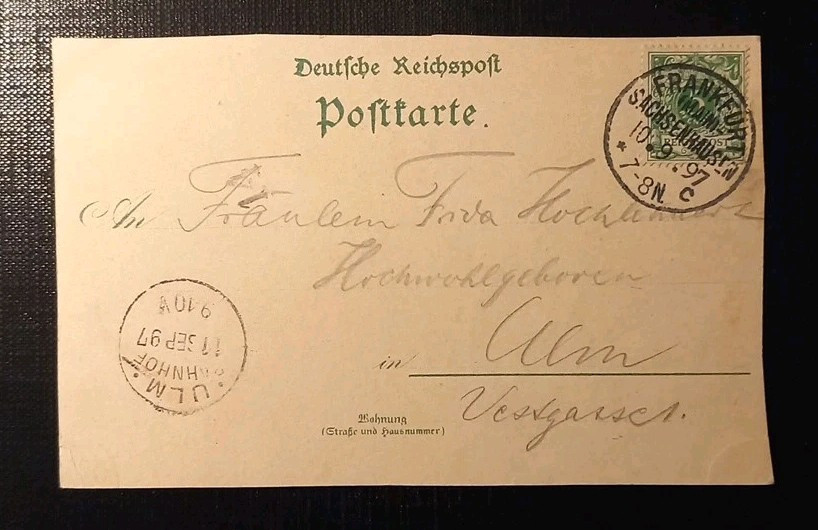 Deutsche Reichspost
Postkarte.
FRANKFURT
(MAIN)
SACHSENHAUSEN
10.9.97
* 7-8N. C
An Fräulein Frida
Hochwohlgeboren
in Ulm
Wohnung
(Straße und Hausnummer)
ULM
BAHNHOF
11 SEP 97